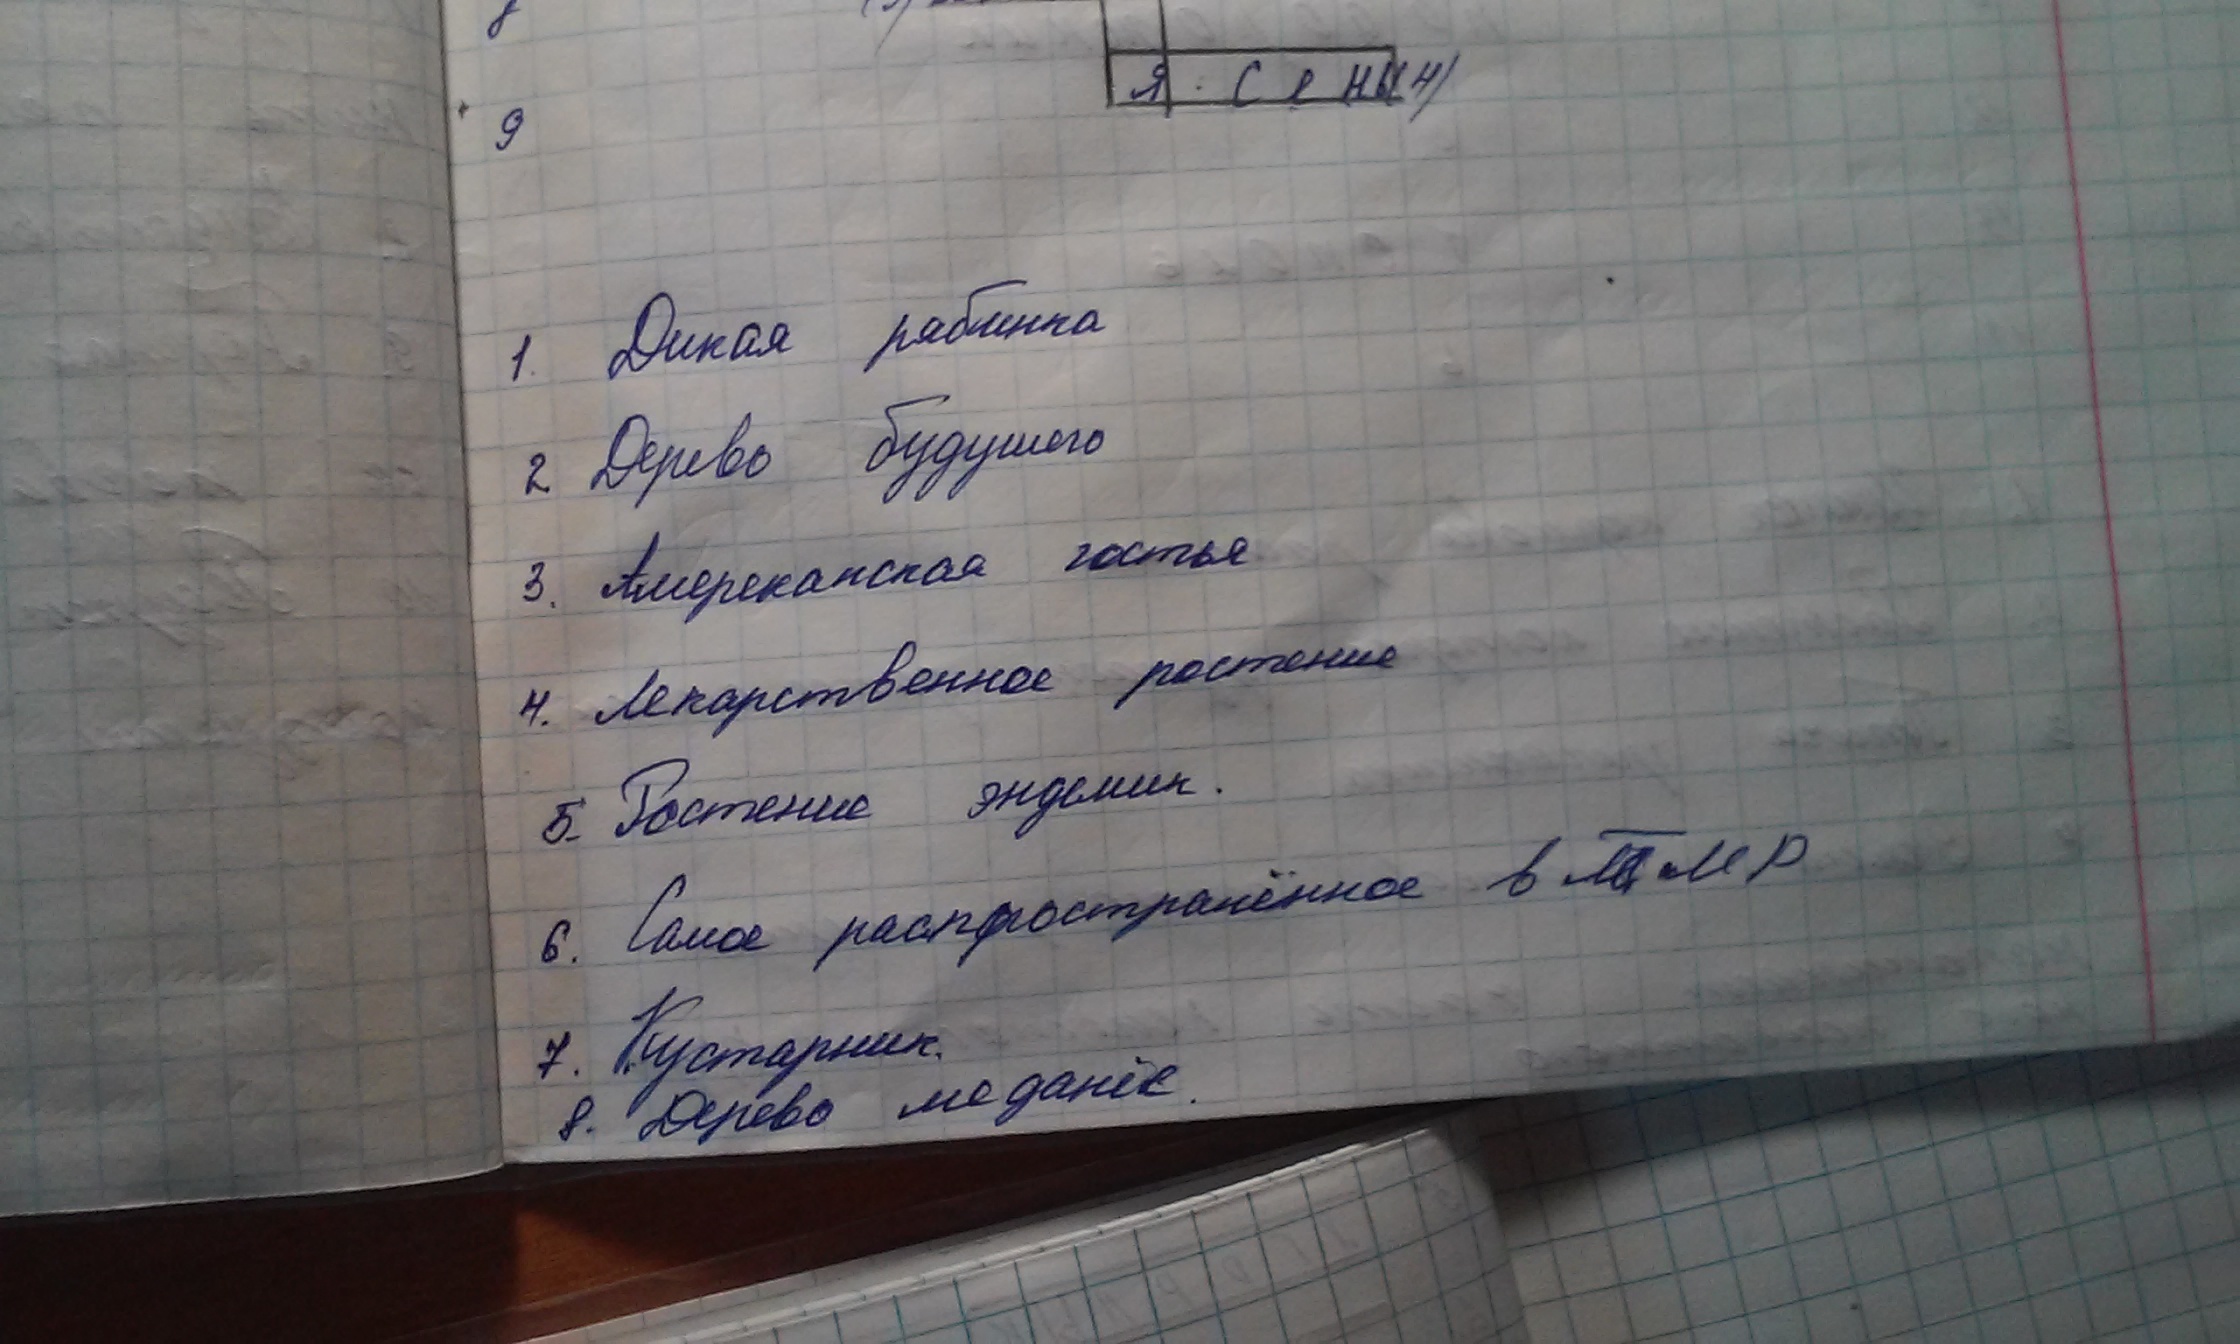 8
Я С е Н Ы(4)
9
1. Дикая рябинка
2 Дерево будушего
3. Американская гостья
4. Лекарственное ростение
5. Ростение эндемик.
6. Самое распространённое в ПМР
7. Кустарник.
8. Дерево меданёк.